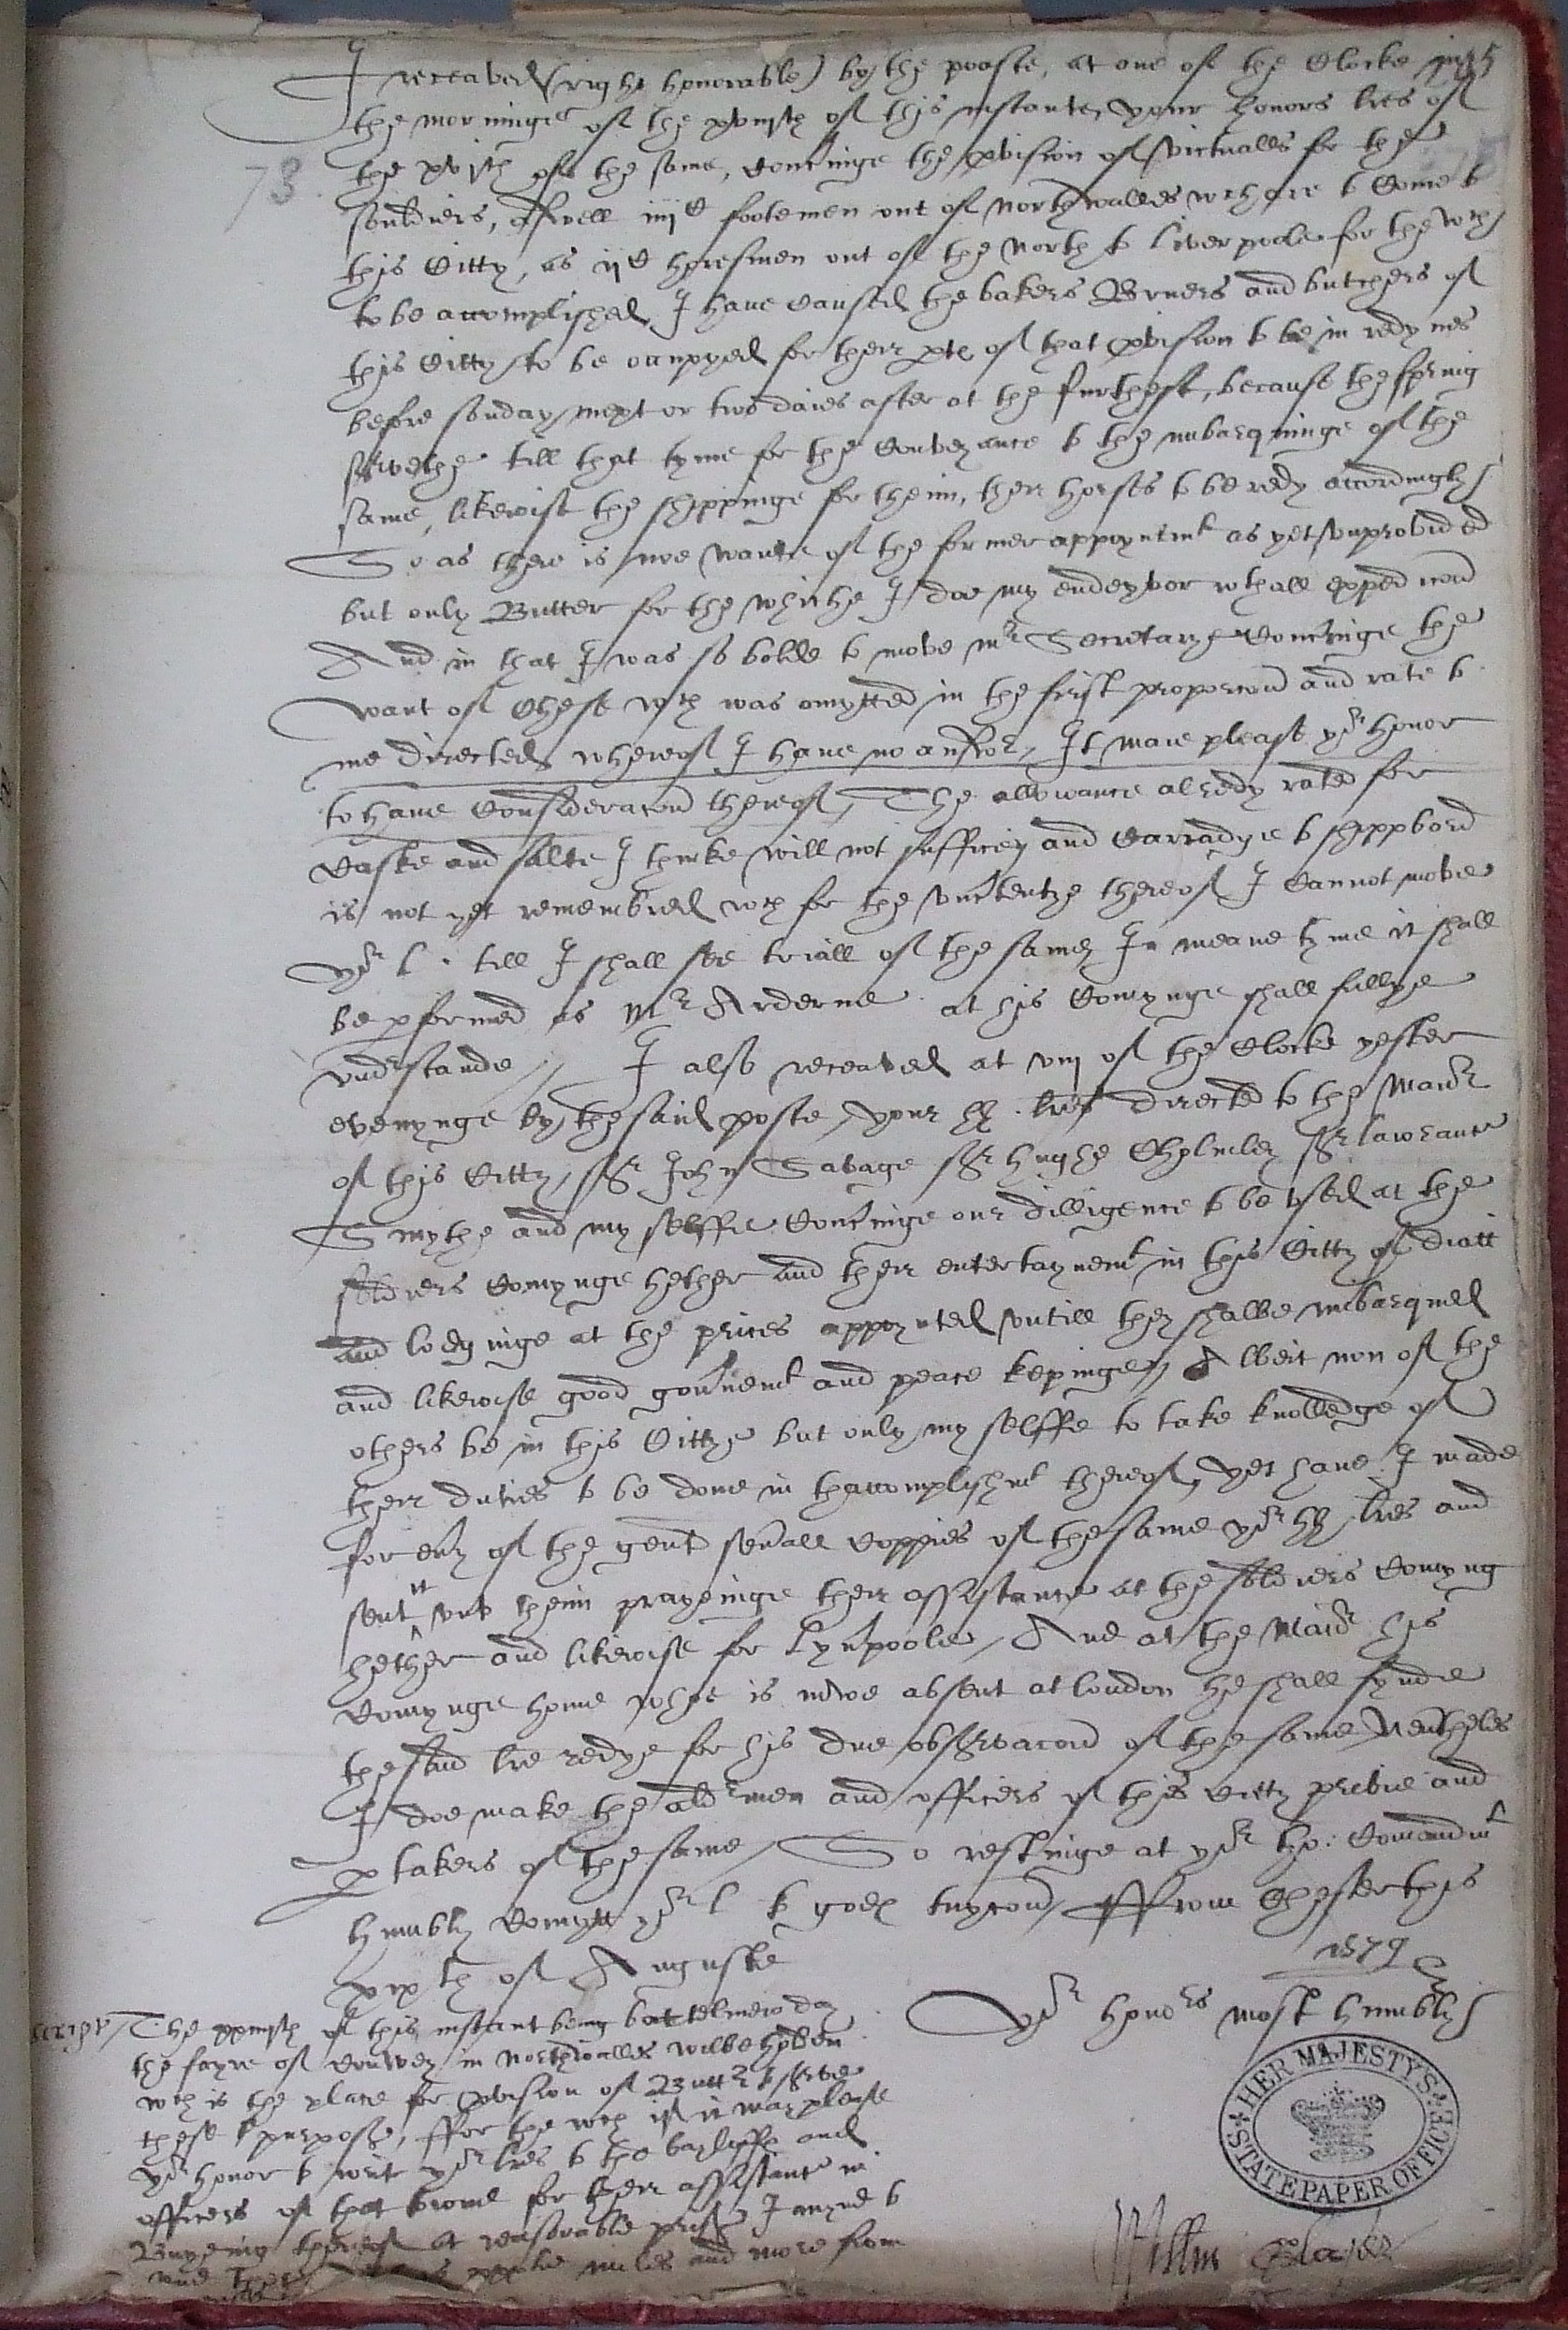 I receaved (right honorable) by the poaste, at one of the Clocke in
the morninge of the xviijth of this instante, your honors lres of
the xvjth of the same, concninge the pvision of victualls for the
73
souldiers, aswell iiijC footemen out of northwalles wch are to Come to
this Citty, as ijC horesmen out of the North to Liverpoole for the wch
to be accomplished, I have Caused the bakers Bruers and butchers of
this Citty to be occupyed for their pte of that pvision to be in redynes
before sonday next or two daies after at the furthest, because the spring
servethe till that tyme for the Conveyance to the imbarquinge of the
same, likewise the shippinge for theim, their horses to be redy accordingly
So as there is noe wante of the former appoyntmt as yet unprovided
but only Butter for the whiche I doe my endeyvor wth all expedicon
And in that I was so bolde to move mr Secretarye Concninge the
want of Chese wch was omytted in the first proporcion and rate to
me directed, wherof I have no answr, It maie please yor honor
to have Consideracon therof, The allowance alredy rated for
Caske and salte I thinke will not suffice, and Carriadge to shippbord
is not yet remembred, wch for the incertentye thereof I Cannot move
yor l. till I shall see triall of the same, In meane tyme it shall
be pformed as Mr Arderne at his Comynge shall fullye
undrstande // I also receaved at viij of the Clocke yester
evenynge by the said poste, your hh. lres directed to the Maior
of this Citty, Sr John Savage Sr hughe Cholmley Sr lawrance
Smythe and my selffe Concninge our dilligence to be used at the
soldiers Comynge hether and their entertaynemt in this Citty of diatt
and lodginge at the prices appoynted, untill they shalbe imbarqued
and likewise good govnemt and peace kepinge, Albeit non of the
others be in this Cittye but only my selffe to take knolledge of
their duties to be done in thaccomplishmt therof, yet have I made
for evy of the gent sevall Coppies of the same yor hh. lres and
sent it unto theim prayeinge their assistance at the soldiers Comyng
hether and likewise for Lyvpoole, And at the Maior his
Comynge home whoe is nowe absent at London he shall fynde
the said lre redye for his due observacon of the same, Nevtheles
I doe make the aldrmen and officers of this Citty privie and
ptakers of the same, So restinge at yor ho: Comandmt
humbly Comytt yor l to godes tuycon, ffrom Chester this
xixth of Auguste 1579
Yor honors most humbly
The xxiiijth of this instant being bartelmew day
the fayre of Conwey in Northwalles wilbe holden
wch is the place for pvision of Buttr to serve
these purpose, ffor the wch if it may please
yor honor to writ yor lres to the baylyffe and
officers of that towne for their assistance in
Buyeing therof at reasonable prise I
miles and more from
Willm
HER MAJESTY'S STATE PAPER OFFICE